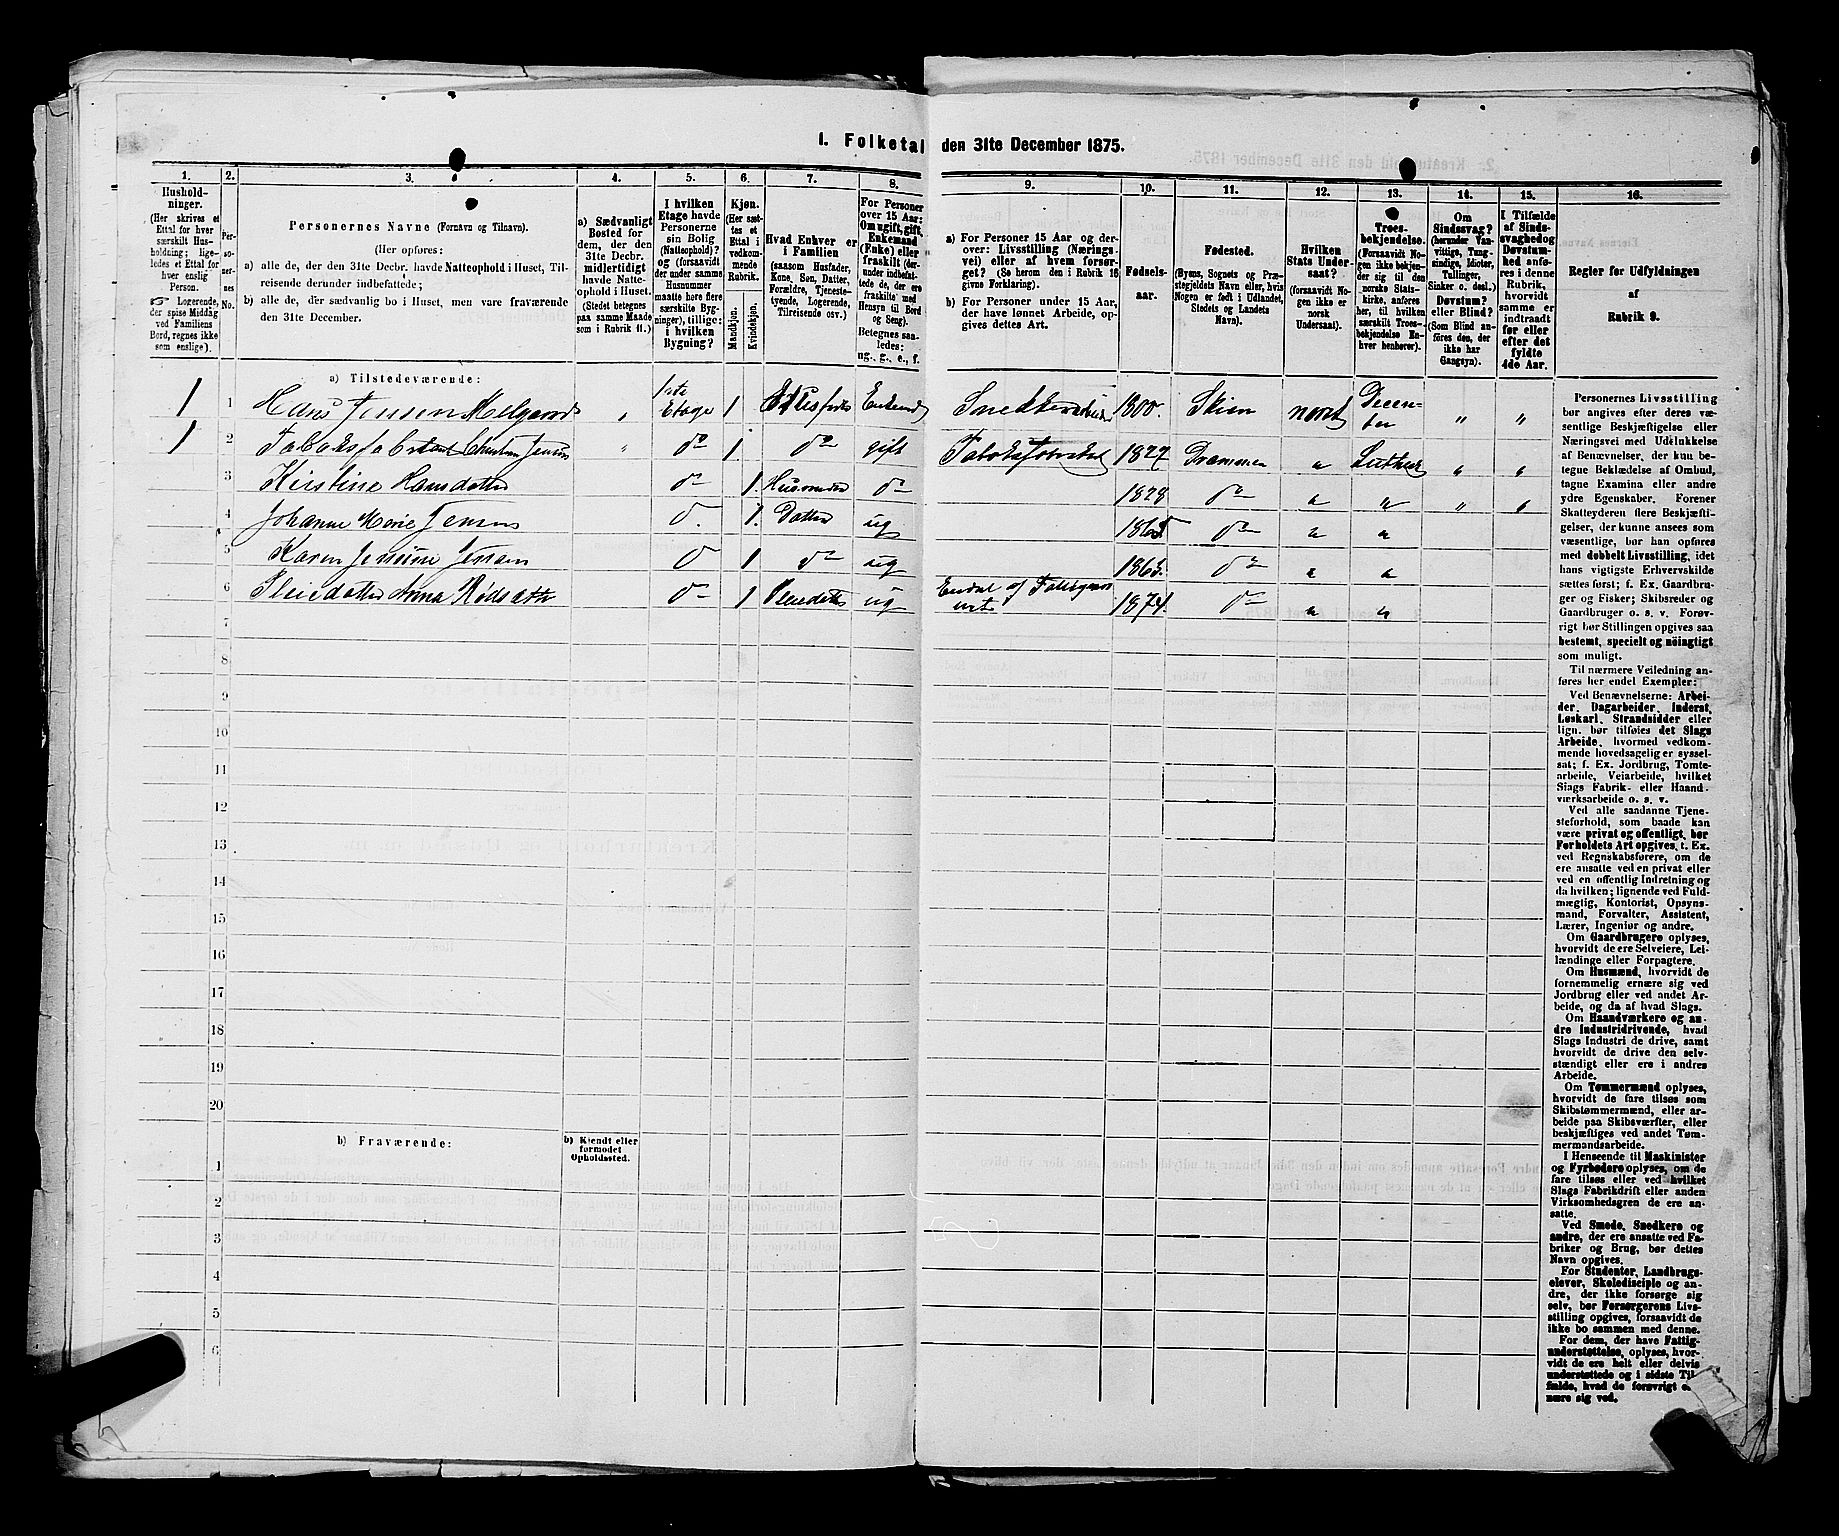 1. Folketal den 31te December 1875.
1. 2. 3. 4. 5. 6. 7. 8. 9. 10. 11. 12. 13. 14. 15. 16.
Hushold-
ninger.
(Her skrives et
Ettal for hver
særskilt Hus-
holdning; lige-
ledes et Ettal for
hver enslig
Person.
Logerende,
der spise Middag
ved Familiens
Bord, regnes ikke
som enslige).
Per-
so-
ner-
nes
No.
Personernes Navne (Fornavn og Tilnavn).
(Her opføres:
a) alle de, der den 31te Decbr. havde Natteophold i Huset, Til-
reisende derunder indbefattede;
b) alle de, der sædvanlig bo i Huset, men vare fraværende
den 31te December.
a) Sædvanligt
Bosted for
dem, der den
31te Decbr.
midlertidigt
havde Natte-
ophold i Huset.
(Stedet betegnes
paa samme Maade
som i Rubrik 11.)
I hvilken
Etage havde
Personerne
sin Bolig
(Natteophold)?
og (forsaavidt
der under samme
Husnummer
maatte høre flere
særskilte Byg-
ninger), tillige:
i hvilken
Bygning?
Kjøn.
(Her sæt-
tes et
Ettal i
vedkom-
mende
Rubrik.
Mandkjøn.
Kvindekjøn.
Hvad Enhver er
i Familien
(saasom Husfader,
Kone, Søn, Datter,
Forældre, Tjeneste-
tyende, Logerende,
Tilreisende osv.)
For Personer
over 15 Aar:
Om ugift, gift,
Enkemand
(Enke) eller
fraskilt (der-
under indbefat-
tede de, der ere
fraskilte med
Hensyn til Bord
og Seng).
Betegnes saa-
ledes:
ug., g., e., f.
a) For Personer 15 Aar og der-
over: Livsstilling (Nærings-
vei) eller af hvem forsør-
get? (Se herom den i Rubrik 16
givne Forklaring).
b) For Personer under 15 Aar,
der have lønnet Arbeide, op-
gives dettes Art.
Fødsels-
aar.
Fødested.
(Byens, Sognets og Præ-
stegjeldets Navn eller, hvis
Nogen er født i Udlandet,
Stedets og Landets
Navn).
Hvilken
Stats Under-
saat?
(forsaavidt No-
gen ikke er
norsk
Undersaat).
Troes-
bekjendelse.
(Forsaavidt No-
gen ikke bekjen-
der sig til den
norske Stats-
kirke, anføres
her, til hvilken
særskilt Troes-
bekjendelse En-
hver henhører).
Om
Sindssvag?
(herunder Van-
vittige, Tung-
sindige, Idioter,
Tullinger,
Sinker o. desl.)
Døvstum?
eller Blind?
(Som Blind an-
føres den, der
ikke har
Gangsyn).
I Tilfælde
af Sinds-
svaghed og
Døvstum-
hed anfø-
res i denne
Rubrik,
hvorvidt
samme er
indtraadt
før eller
efter det
fyldte
4de Aar.
Regler for Udfyldningen
af
Rubrik 9.
a) Tilstedeværende:
1 1 Hans Jensen Melgaard " 1ste Etage 1 Enkemd Snedker 1800. Skien norsk Decem- ber " "
1 2 Tabaksfabrikant Christian Jensen " do 1. do gift Tabaksfabrikant 1827 Drammen " Luther " "
3 Kirstine Hansdatter do 1. Husmoder do 1828 do " " " "
4 Johanne Marie Jensen do. 1. Datter ug 1865 do " "
5 Karen Jensine Jensen do 1 do ug 1863. do " "
6 Pleiedatter Anna do 1 Pleiedatter ug af 1874. do " "
7
8
9
10
11
12
13
14
15
16
17
18
19
20
b) Fraværende:
b) Kjendt eller
formodet
Opholdssted.
1
2
3
4
5
6
Personernes Livsstilling
bør angives efter deres væ-
sentlige Beskjæftigelse eller
Næringsvei med Udelukkelse
af Benævnelser, der kun be-
tegne Beklædelse af Ombud,
tagne Examina eller andre
ydre Egenskaber. Forener
Skatteyderen flere Beskjæfti-
gelser, der kunne ansees som
væsentlige, bør han opføres
med dobbelt Livsstilling, idet
hans vigtigste Erhvervskilde
sættes først; f. Ex. Gaardbru-
ger og Fisker; Skibsreder og
Gaardbruger o. s. v. Forøv-
rigt bør Stillingen opgives saa
bestemt, specielt og nöiagtigt
som muligt.
Til nærmere Veiledning an-
føres her endel Exempler:
Ved Benævnelserne: Arbei-
der, Dagarbeider, Inderst,
Løskarl, Strandsidder eller
lign. bør tilføies det Slags
Arbeide, hvormed vedkom-
mende hovedsagelig er syssel-
sat; f. Ex. Jordbrug, Tomte-
arbeide, Veiarbeide, hvilket
Slags Fabrik- eller Haand-
værksarbeide o. s. v.
Ved alle saadanne Tjene-
steforhold, som baade kan
være privat og offentligt, bør
Forholdets Art opgives, t. Ex.
ved Regnskabsførere, om de
ere ansatte ved en privat eller
ved en offentlig Indretning og
da hvilken; lignende ved Fuld-
mægtig, Kontorist, Opsyns-
mand, Forvalter, Assistent,
Lærer, Ingeniør og andre.
Om Gaardbrugere oplyses,
hvorvidt de ere Selveiere, Lei-
lændinge eller Forpagtere.
Om Husmænd, hvorvidt de
fornemmelig ernære sig ved
Jordbrug eller ved andet Ar-
beide, og da af hvad Slags.
Om Haandværkere og an-
dre Industridrivende, hvad
Slags Industri de drive, samt
hvorvidt de drive den selv-
stændigt eller ere i andres
Arbeide.
Om Tømmermænd oplyses,
hvorvidt de fare tilsøs som
Skibstømmermænd, eller ar-
beide paa Skibsværfter, eller
beskjæftiges ved andet Tøm-
mermandsarbeide.
I Henseende til Maskinister
og Fyrbødere oplyses, om de
fare tilsøs eller ved hvilket
Slags Fabrikdrift eller anden
Virksomhedsgren de ere an-
satte.
Ved Smede, Snedkere og
andre, der ere ansatte ved Fa-
briker og Brug, bør dettes
Navn opgives.
For Studenter, Landbrugs-
elever, Skoledisciple og an-
dre, der ikke forsørge sig
selv, bør Forsørgerens Livs-
stilling opgives, forsaavidt de
ikke bo sammen med denne.
For dem, der have Fattig-
understøttelse, oplyses, hvor-
vidt de ere helt eller delvis
understøttede og i sidste Til-
fælde, hvad de forøvrigt er-
nære sig ved.